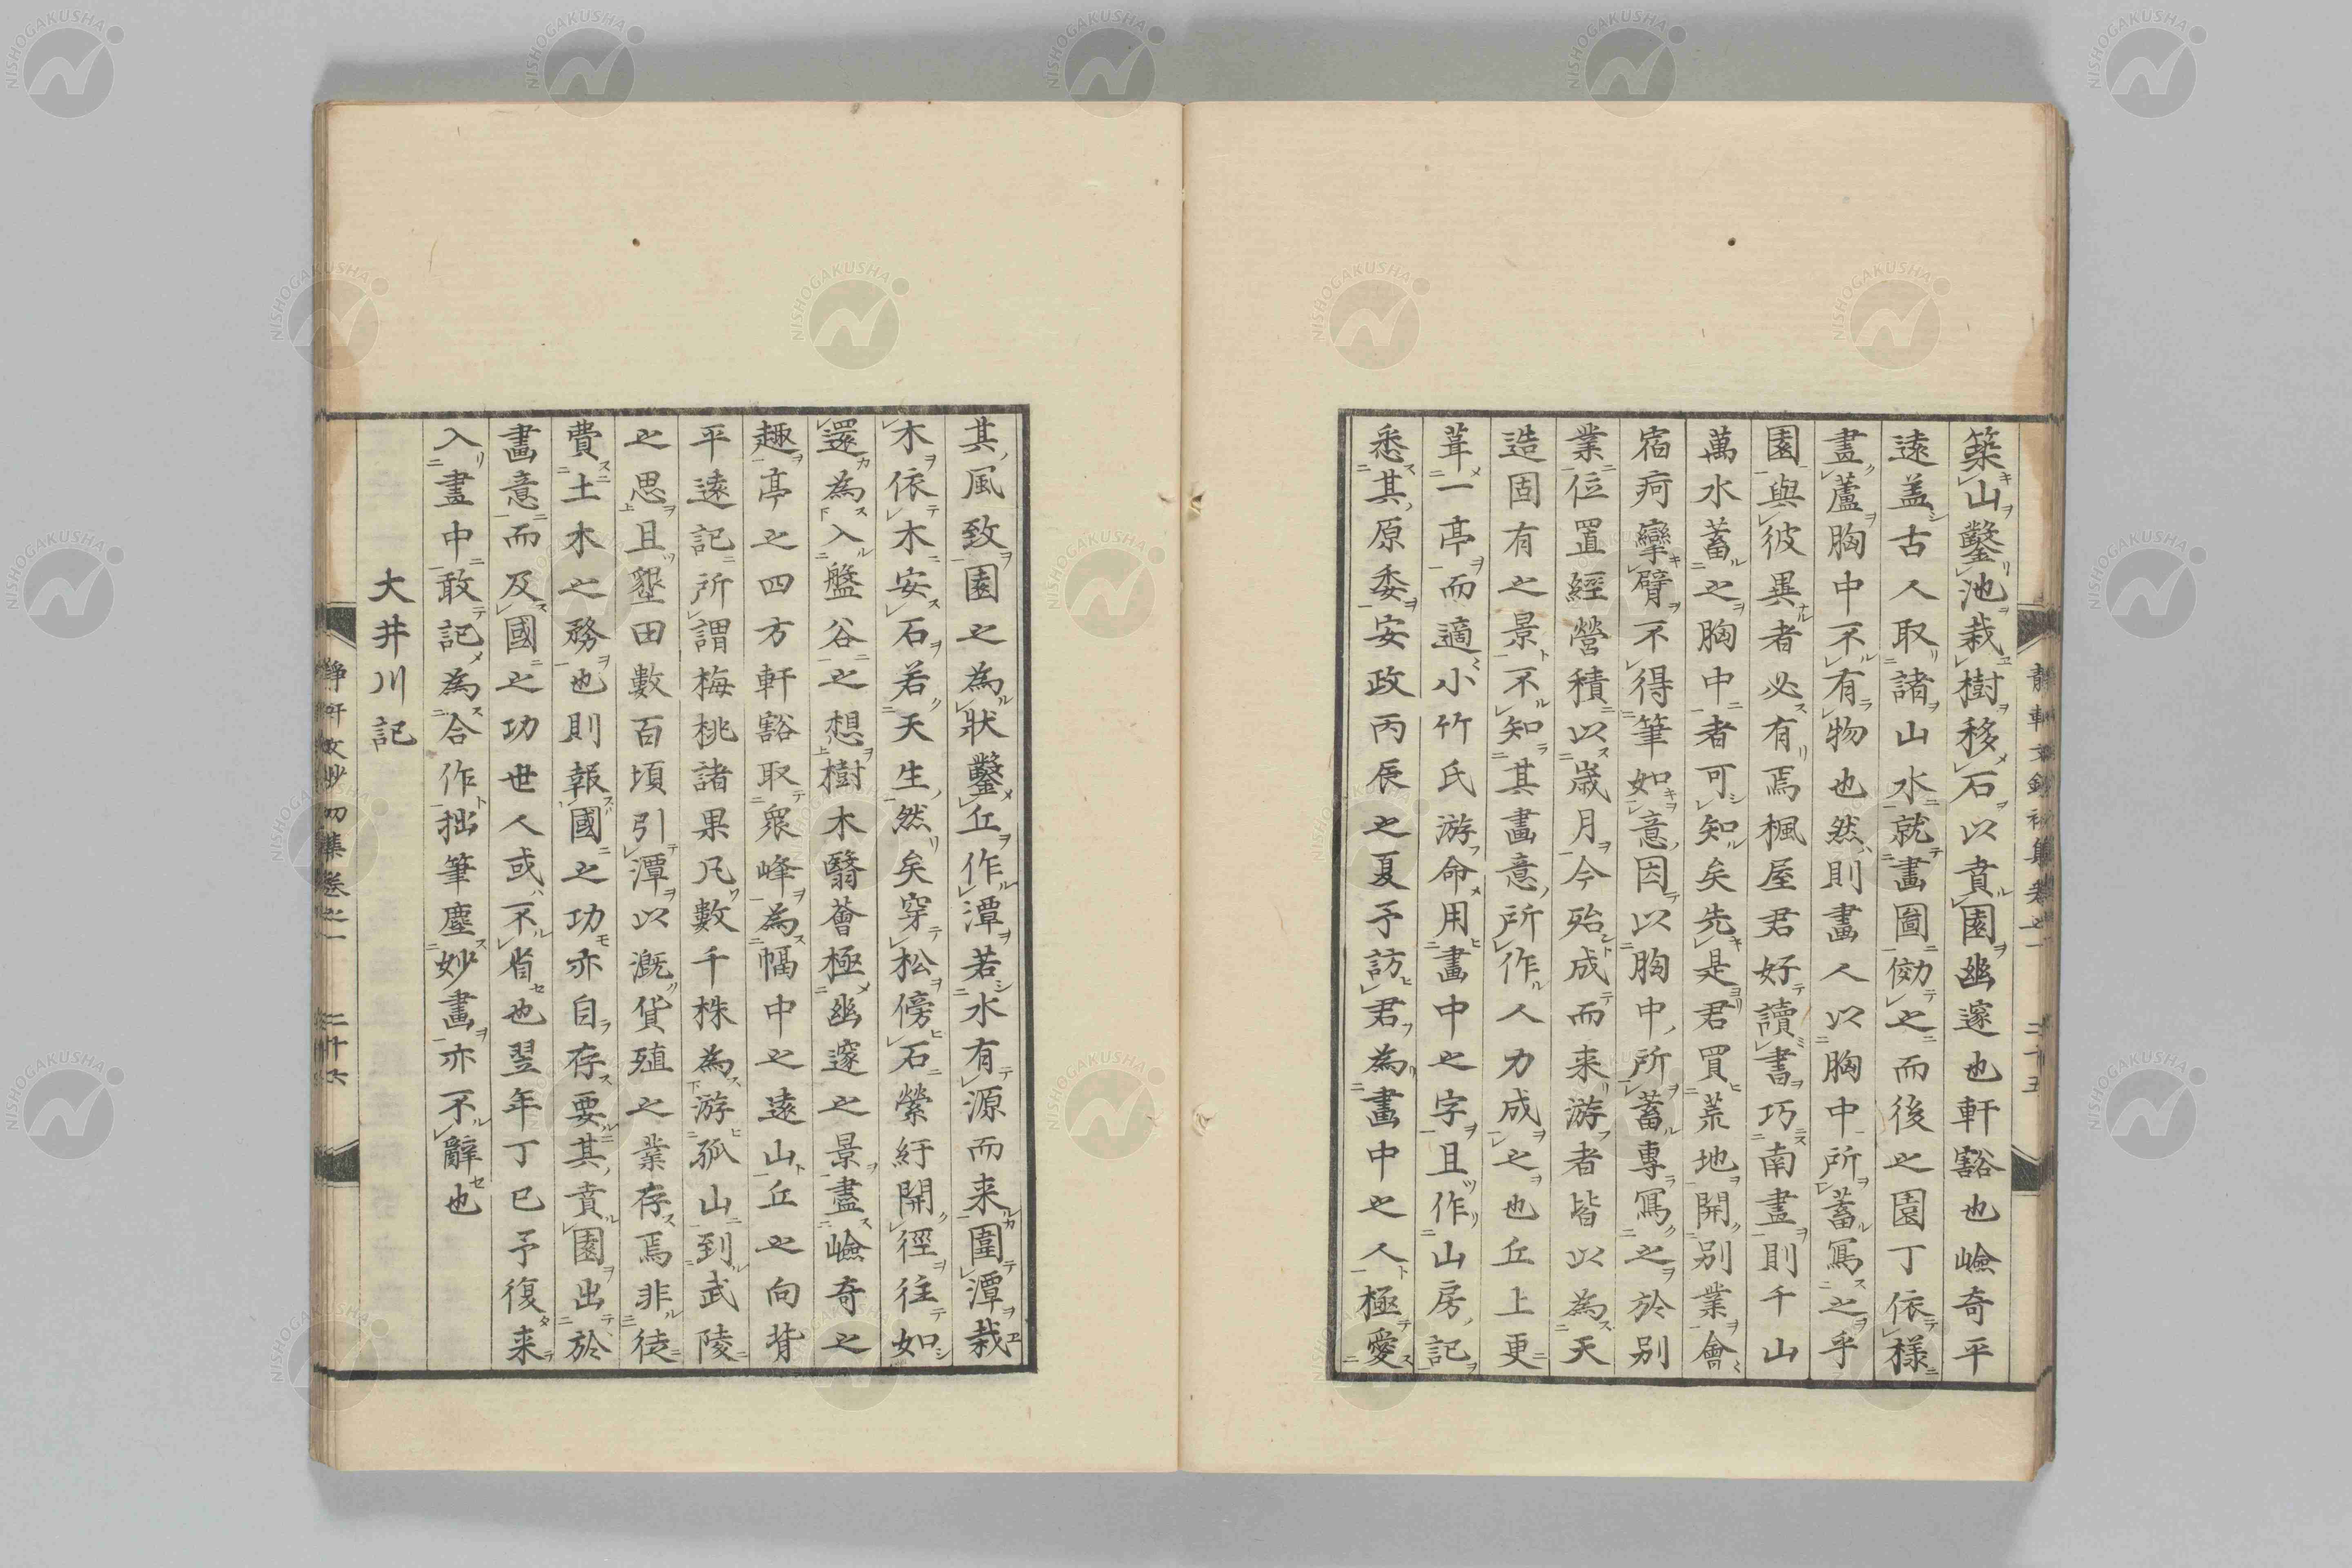 築山鑿池栽樹移石以賁園幽邃也軒豁也嶮奇平
遠盖古人取諸山水就畫圖傚之而後之園丁依樣
畫蘆胸中不有物也然則畫人以胸中所蓄寫之乎
園與彼異者必有焉楓屋君好讀書巧南畫則千山
萬水蓄之胸中者可知矣先是君買荒地開别業會
宿疴攣臂不得筆如意因以胸中所蓄專寫之於别
業位置經營積以歳月今殆成而来游者皆以為天
造固有之景不知其畫意所作人力成之也丘上更
葺一亭而適小竹氏游命用畫中之字且作山房記
悉其原委安政丙辰之夏予訪君為畫中之人極愛
靜軒文鈔初集卷之一 二十五
其風致園之為狀鑿丘作潭若水有源而来圍潭栽
木依木安石若天生然矣穿松傍石縈紆開徑往如
還為入盤谷之想樹木翳薈極幽邃之景盡嶮奇之
趣亭之四方軒豁取衆峰為幅中之遠山丘之向背
平遠記所謂梅桃諸果凡數千株為游孤山到武陵
之思且墾田數百頃引潭以漑貨殖之業存焉非徒
費土木之務也則報國之功亦自存要其賁園出於
畫意而及國之功世人或不省也翌年丁巳予復来
入畫中敢記為合作拙筆塵妙畫亦不辭也
大井川記
靜軒文鈔初集卷之一 二十六
NISHOGAKUSHA